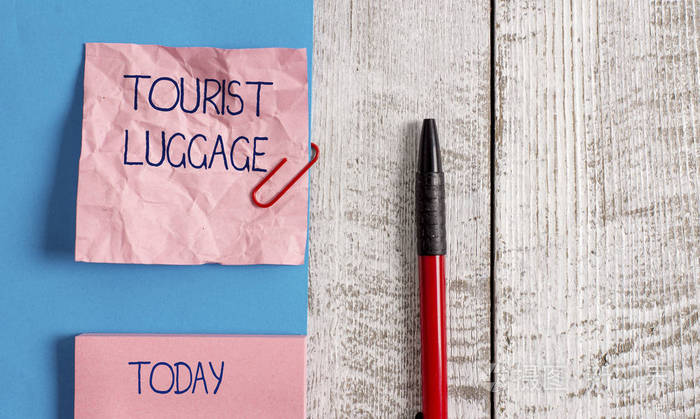 TOURIST
LUGGAGE
TODAY